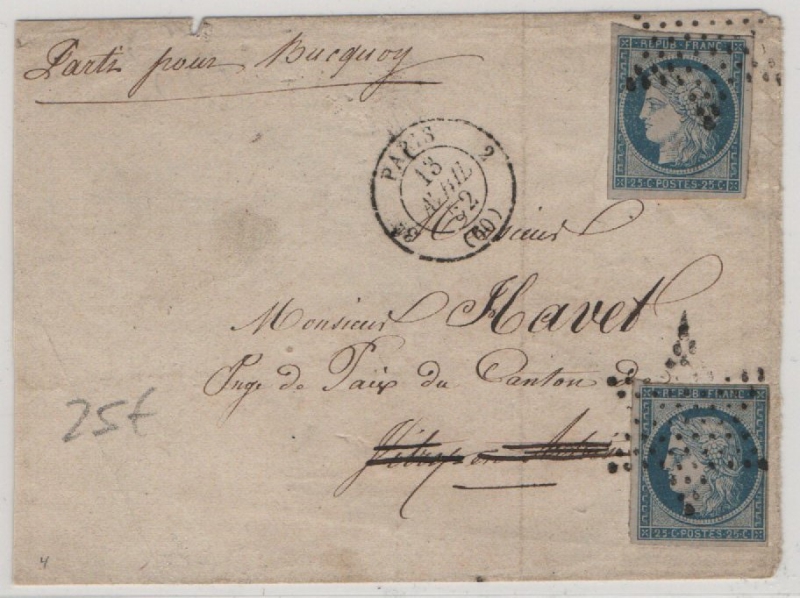 Parti pour Bucquoy
REPUB FRANC
25 C POSTES 25 C
PARIS 2
13
AVRIL
52
(60)
Monsieur
Monsieur Havet
Juge de Paix du Canton de
Vitry en Artois
REPUB FRANC
25 C POSTES 25 C
25€
4